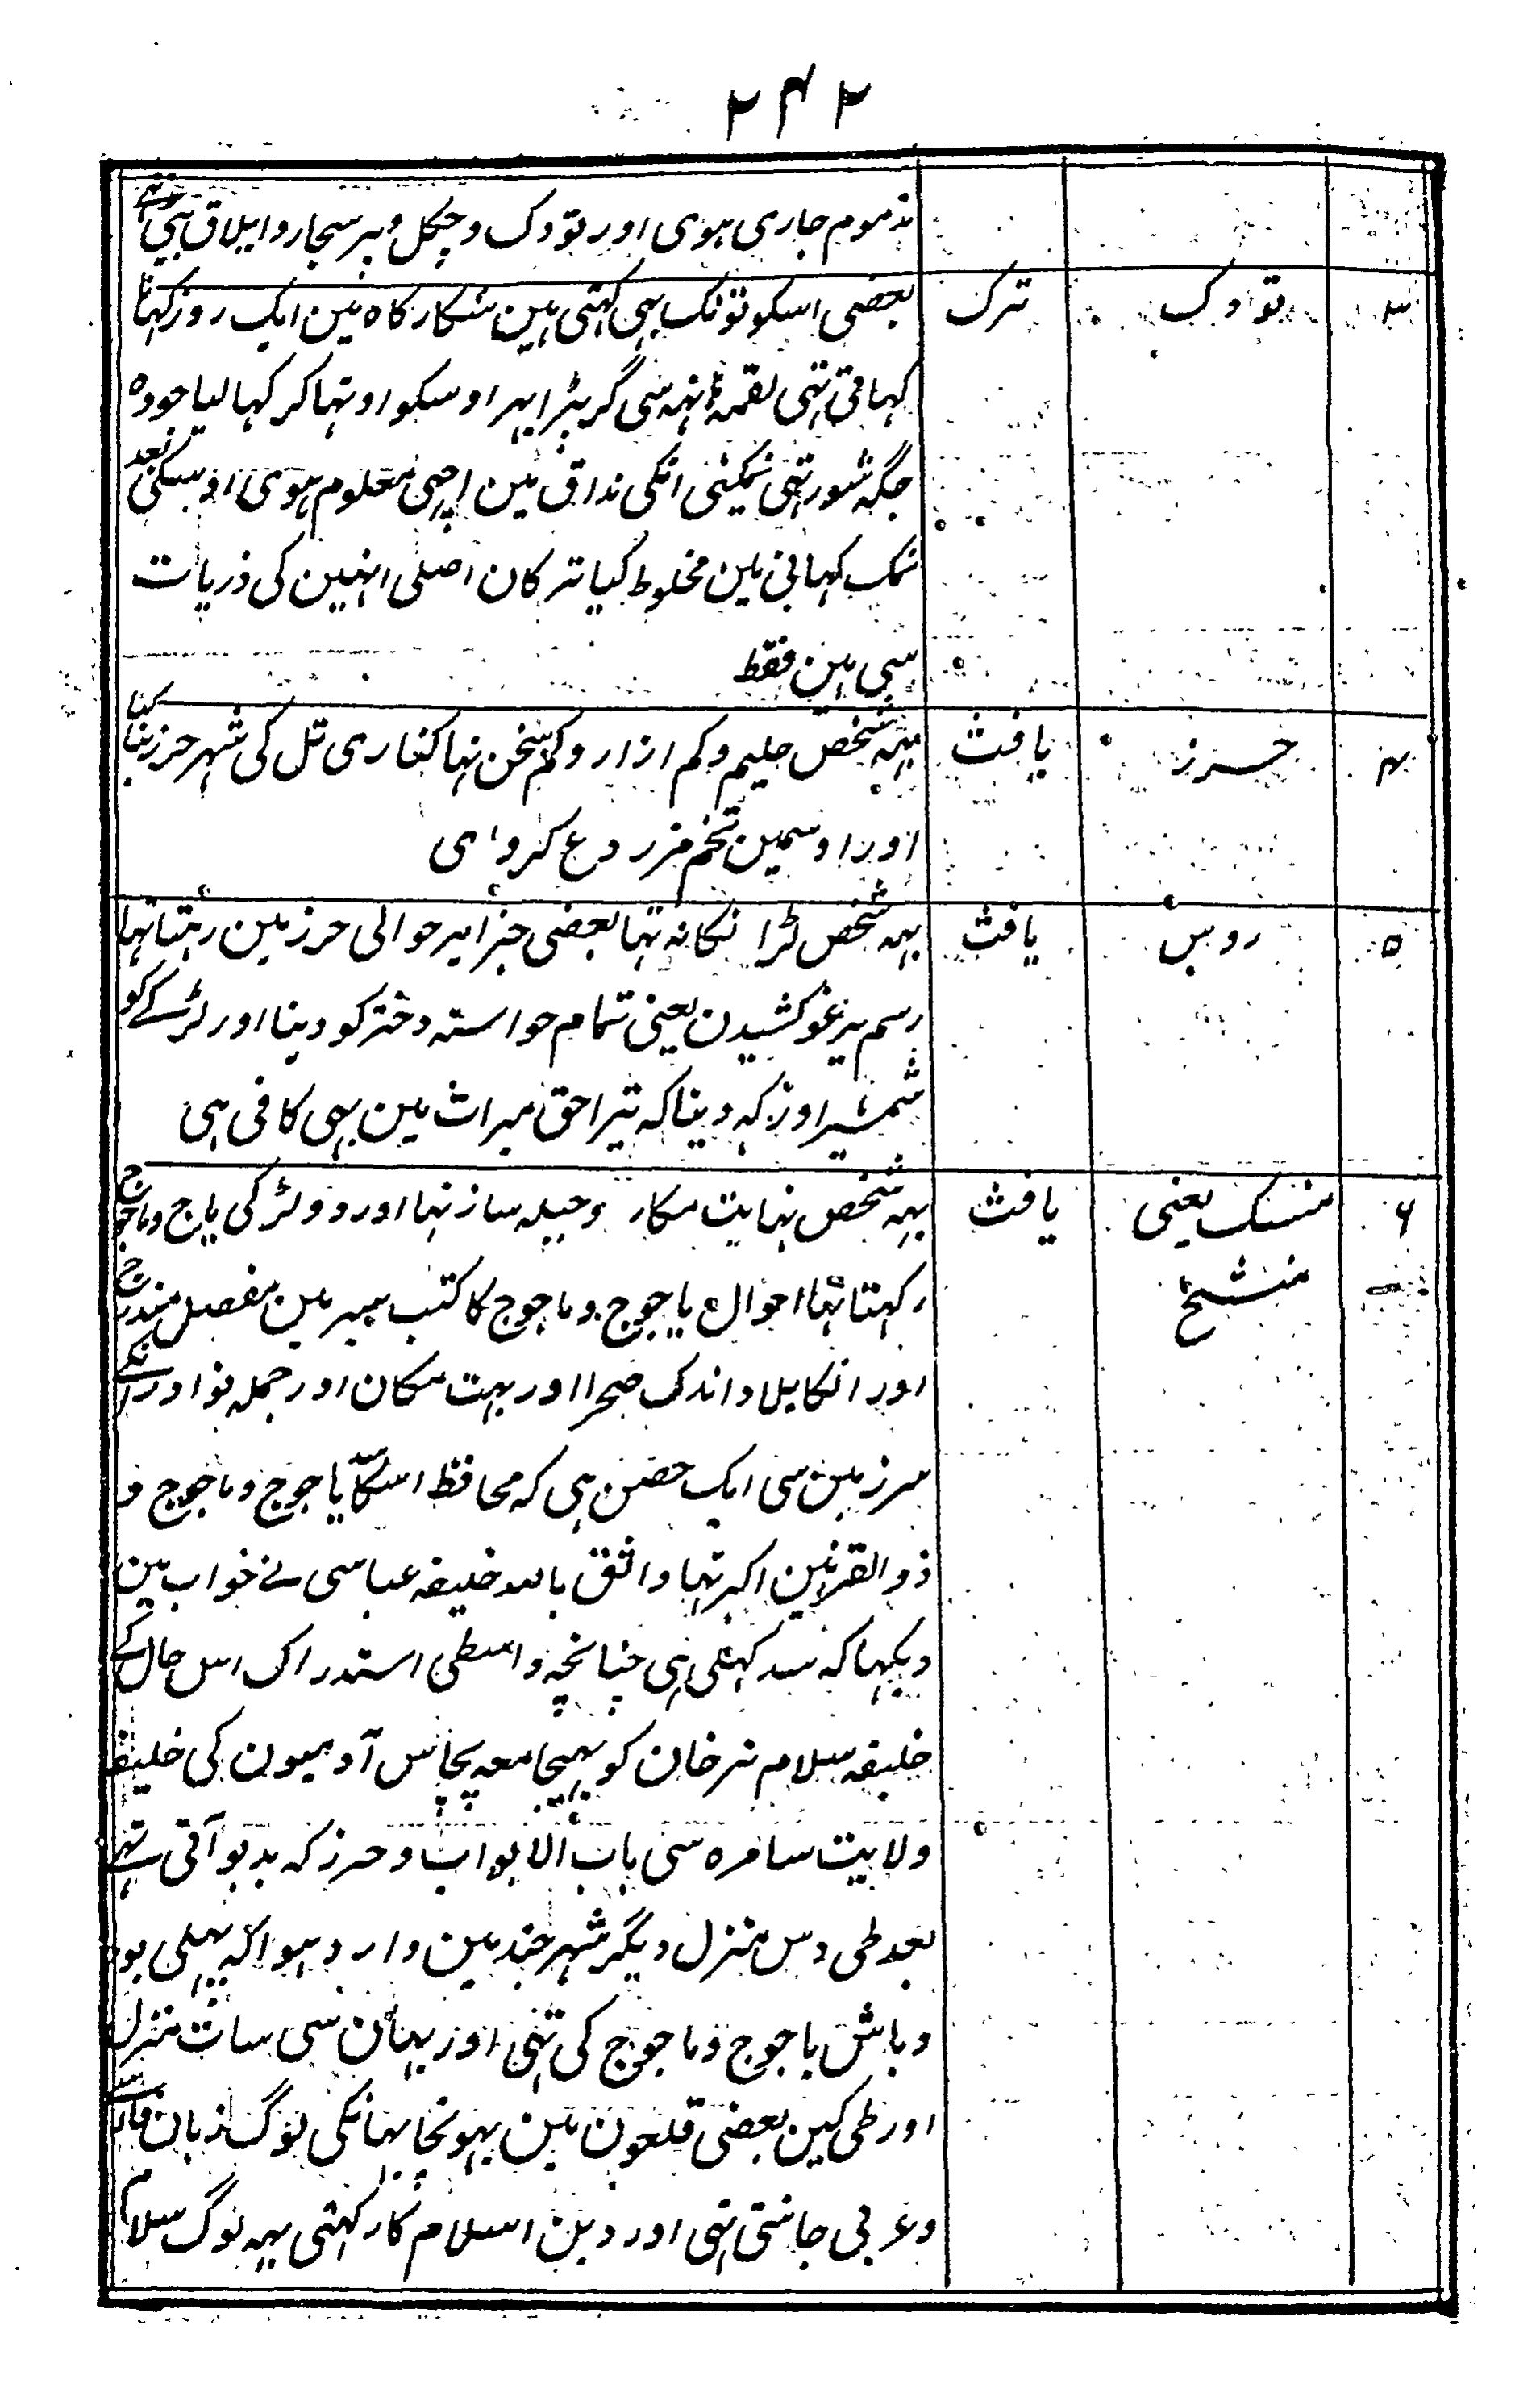 ۲۴۲
مذموم جاری ہوی اور تودک و چکل و برسجار و ایلاق بیٹی تھے
۳ تودک ترک بعضی اسکو توتک بہی کہتی ہین شکار کاہ مین ایک روز کہانا
کہاتی تہی لقمہ ہاتہہ سی گر پڑا پہر اوسکو اوتہا کر کہا لیا جو وہ
جگہ شور تہی نمکینی انکی مذاق مین اچہی معلوم ہوی اوسکی بعد
نمک کہانی مین مخلوط کیا ترکان اصلی انہین کی ذریات
سی ہین فقط
۴ خرز یافث یہہ شخص حلیم و کم ازار و کم سخن تہا کناری تل کی شہر خرز بنا کیا
اور اوسمین تخم مزروع کروای
۵ روس یافث یہہ شخص لڑانکا نہ تہا بعضی جزایر حوالی خرز مین رہتا تہا
رسم یرغو کشیدن یعنی تمام خواستہ دختر کو دینا اور لڑکے کو
شمشیر اور کہ دینا کہ تیرا حق میراث مین یہی کافی ہی
۶ منسک یعنی یافث یہہ شخص نہایت مکار و حیلہ ساز تہا اور دو لڑکی یاجوج و ماجوج
منشخ رکہتا تہا احوال یاجوج و ماجوج کا کتب سیر مین مفصل مندرج
اور انکا بلاد اندک صحرا اور بہت مکان اور جملہ نوادر انکے
سرزمین سی ایک حصن ہی کہ محافظ اسکا یاجوج و ماجوج و
ذوالقرنین اکبر تہا واثق باللہ خلیفہ عباسی نے خواب مین
دیکہا کہ سد کہلی ہی چنانچہ واسطی استدراک اس حال کے
خلیفہ سلام ترخان کو بہیجا معہ پچاس آدمیون کی خلیفہ
ولایت سامرہ سی باب الابواب و خرز کہ بدبو آتی تہی
بعد طی دس منزل دیگر شہر چند مین وارد ہوا کہ پہلی بود
و باش یاجوج و ماجوج کی تہی اور یہان سی سات منزل
اور طی کین بعضی قلعون مین پہونچا یہانکی لوگ زبان فارسی
و عربی جانتی تہی اور دین اسلام کا رکہتی یہہ لوگ سلام